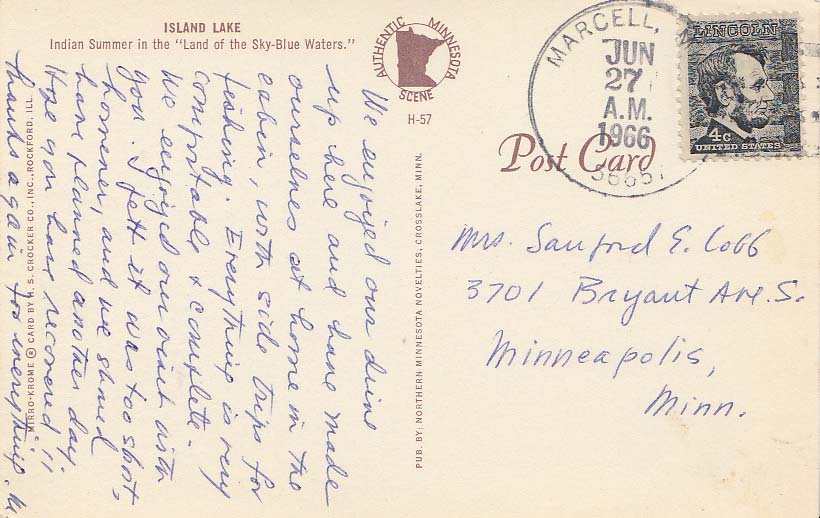 ISLAND LAKE
Indian Summer in the "Land of the Sky-Blue Waters."
AUTHENTIC MINNESOTA
SCENE
H-57
MARCELL, M
JUN
27
A.M.
1966
56657
LINCOLN
4c
UNITED STATES
Post Card
We enjoyed our drive
up here and have made
ourselves at home in the
cabin, with side trips for
fishing. Everything is very
comfortable & complete.
We enjoyed our visit with
you. I felt it was too short,
however, and we should
have planned another day.
Hope you have recovered!!
Thanks again for everything.
Mrs. Sanford E. Cobb
3701 Bryant Ave. S.
Minneapolis,
Minn.
PUB. BY: NORTHERN MINNESOTA NOVELTIES, CROSSLAKE, MINN.
MIRRO-KROME ® CARD BY H. S. CROCKER CO., INC., ROCKFORD, ILL.